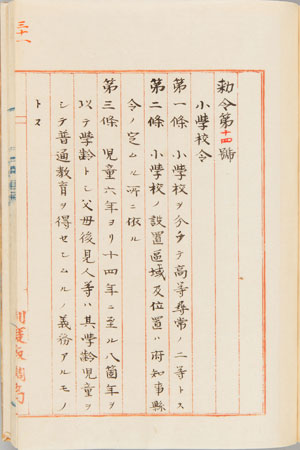 勅令第十四號
小學校令
第一條 小學校ヲ分チテ高等尋常ノ二等トス
第二條 小學校ノ設置區域及位置ハ府知事縣
令ノ定ムル所ニ依ル
第三條 兒童六年ヨリ十四年ニ至ル八箇年ヲ
以テ學齡トシ父母後見人等ハ其學齡兒童ヲ
シテ普通教育ヲ得セシムルノ義務アルモノ
トス
三十一